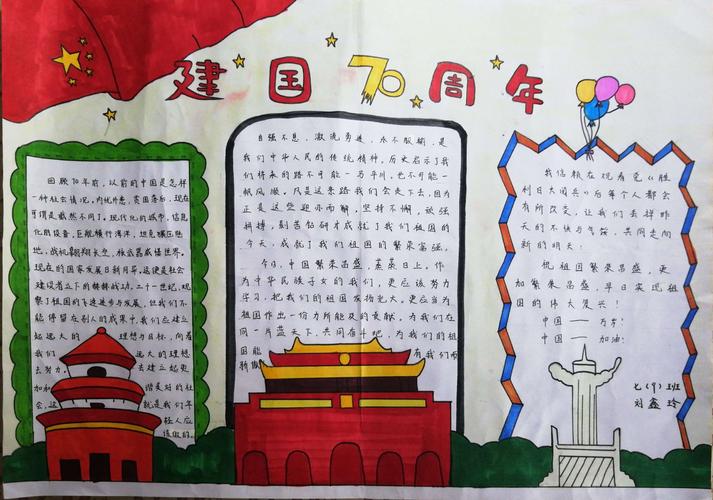 建国70周年
回顾70年前，以前的中国是怎样
一种社会情况，内忧外患，贫困落后，现在
可谓是截然不同了。现代化的城市，信息
化的设备，巨舰横行海洋，坦克碾压陆
地，战机翱翔长空，核武器威慑世界。
现在的国家发展日新月异，这便是社会
建设者立下的赫赫战功。二十一世纪，见
聚了祖国的飞速进步与发展，但我们不
能停留在别人的成果中，我们应建立
起远大的 理想与目标，向着
我们 远大的理想
去努力。 去建立起更
加和 谐美好的社
会，这 就是我们年
轻人应
该做的。
自强不息，激流勇进，永不服输，是
我们中华人民的传统精神，历史启示了我
们将来的路不可能一马平川，也不可能一
帆风顺。凡是这条路我们会走下去，因为
正是这些迎亦而解，坚持不懈，顽强
拼搏，刻苦钻研才成就了我们祖国的
今天，成就了我们祖国的繁荣富强。
今日，中国繁荣昌盛，蒸蒸日上。作
为中华民族子女的我们，更应该努力
学习，把我们的祖国发扬光大。更应当为
祖国作出一份力所能及的贡献。为我们在
同一片蓝天下，共同奋斗吧，为我们的祖
国能
有我们而
我信赖在观看完《胜
利日大阅兵》后每个人都会
有所改变，让我们丢掉昨
天的不快与气馁，共同走向
新的明天！
祝祖国繁荣昌盛，更
加繁荣昌盛，早日实现祖
国的伟大复兴！
中国——万岁！
中国——加油！
七（9）班
刘鑫玲